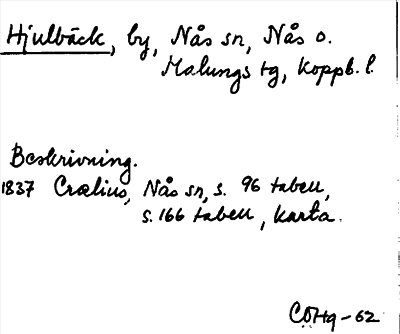 Hjulbäck, by, Nås sn, Nås o.
Malungs tg, Koppb. l.
Beskrivning.
1837 Crælius, Nås sn, s. 96 tabell,
s. 166 tabell, karta.
COHg-62